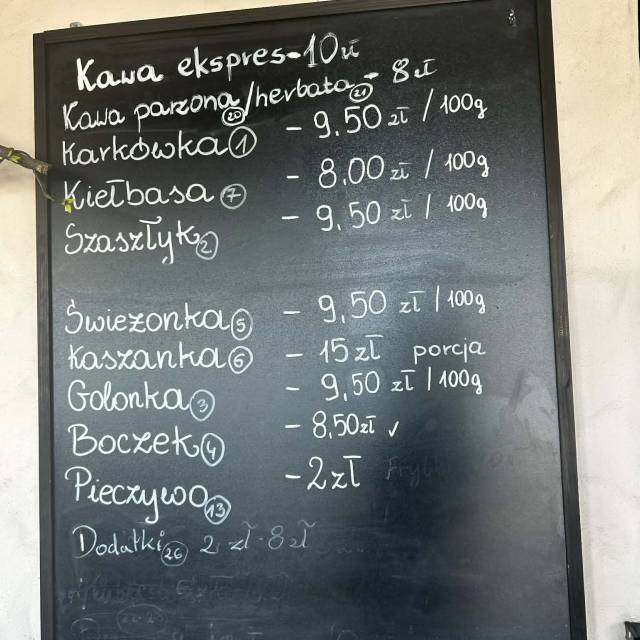 Kawa ekspres-10zł
Kawa parzona 20/herbata 21 - 8zł
Karkówka 1 - 9,50 zł / 100g
Kiełbasa 7 - 8,00 zł / 100g
Szaszłyk 2 - 9,50 zł / 100g
Świeżonka 5 - 9,50 zł / 100g
Kaszanka 6 - 15 zł porcja
Golonka 3 - 9,50 zł / 100g
Boczek 4 - 8,50zł ✓
Pieczywo 13 - 2 zł
Dodatki 26 2 zł - 8 zł